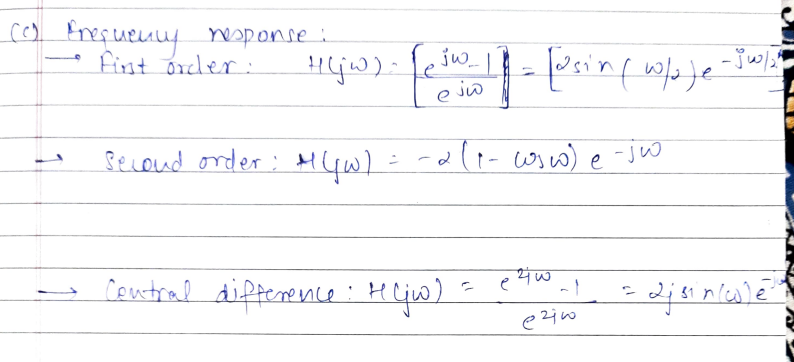 (c) Frequency response :
→ First order : H(jω) = [e^{jω} - 1 / e^{jω}] = [2sin(ω/2)e^{-jω/2}]
→ Second order : H(jω) = -2(1 - cosω) e^{-jω}
→ Central difference : H(jω) = e^{2jω} - 1 / e^{2jω} = 2j sin(ω)e^{-jω}